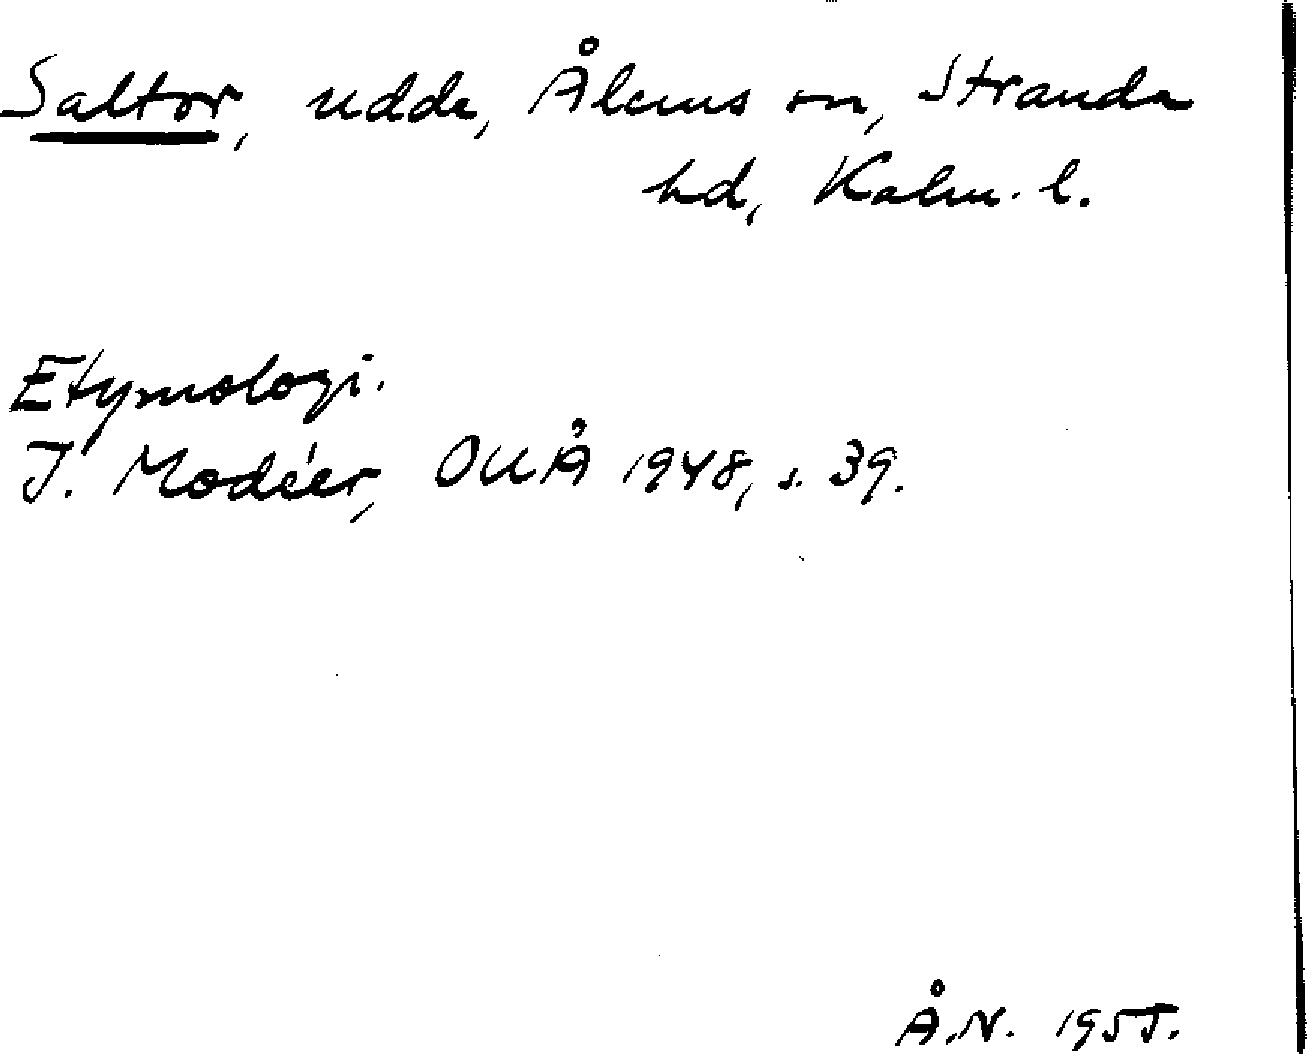 Saltor, udde, Ålems sn, Stranda
hd, Kalm. l.
Etymologi.
I. Modéer, OUÅ 1948, s. 39.
Å.N. 1955.